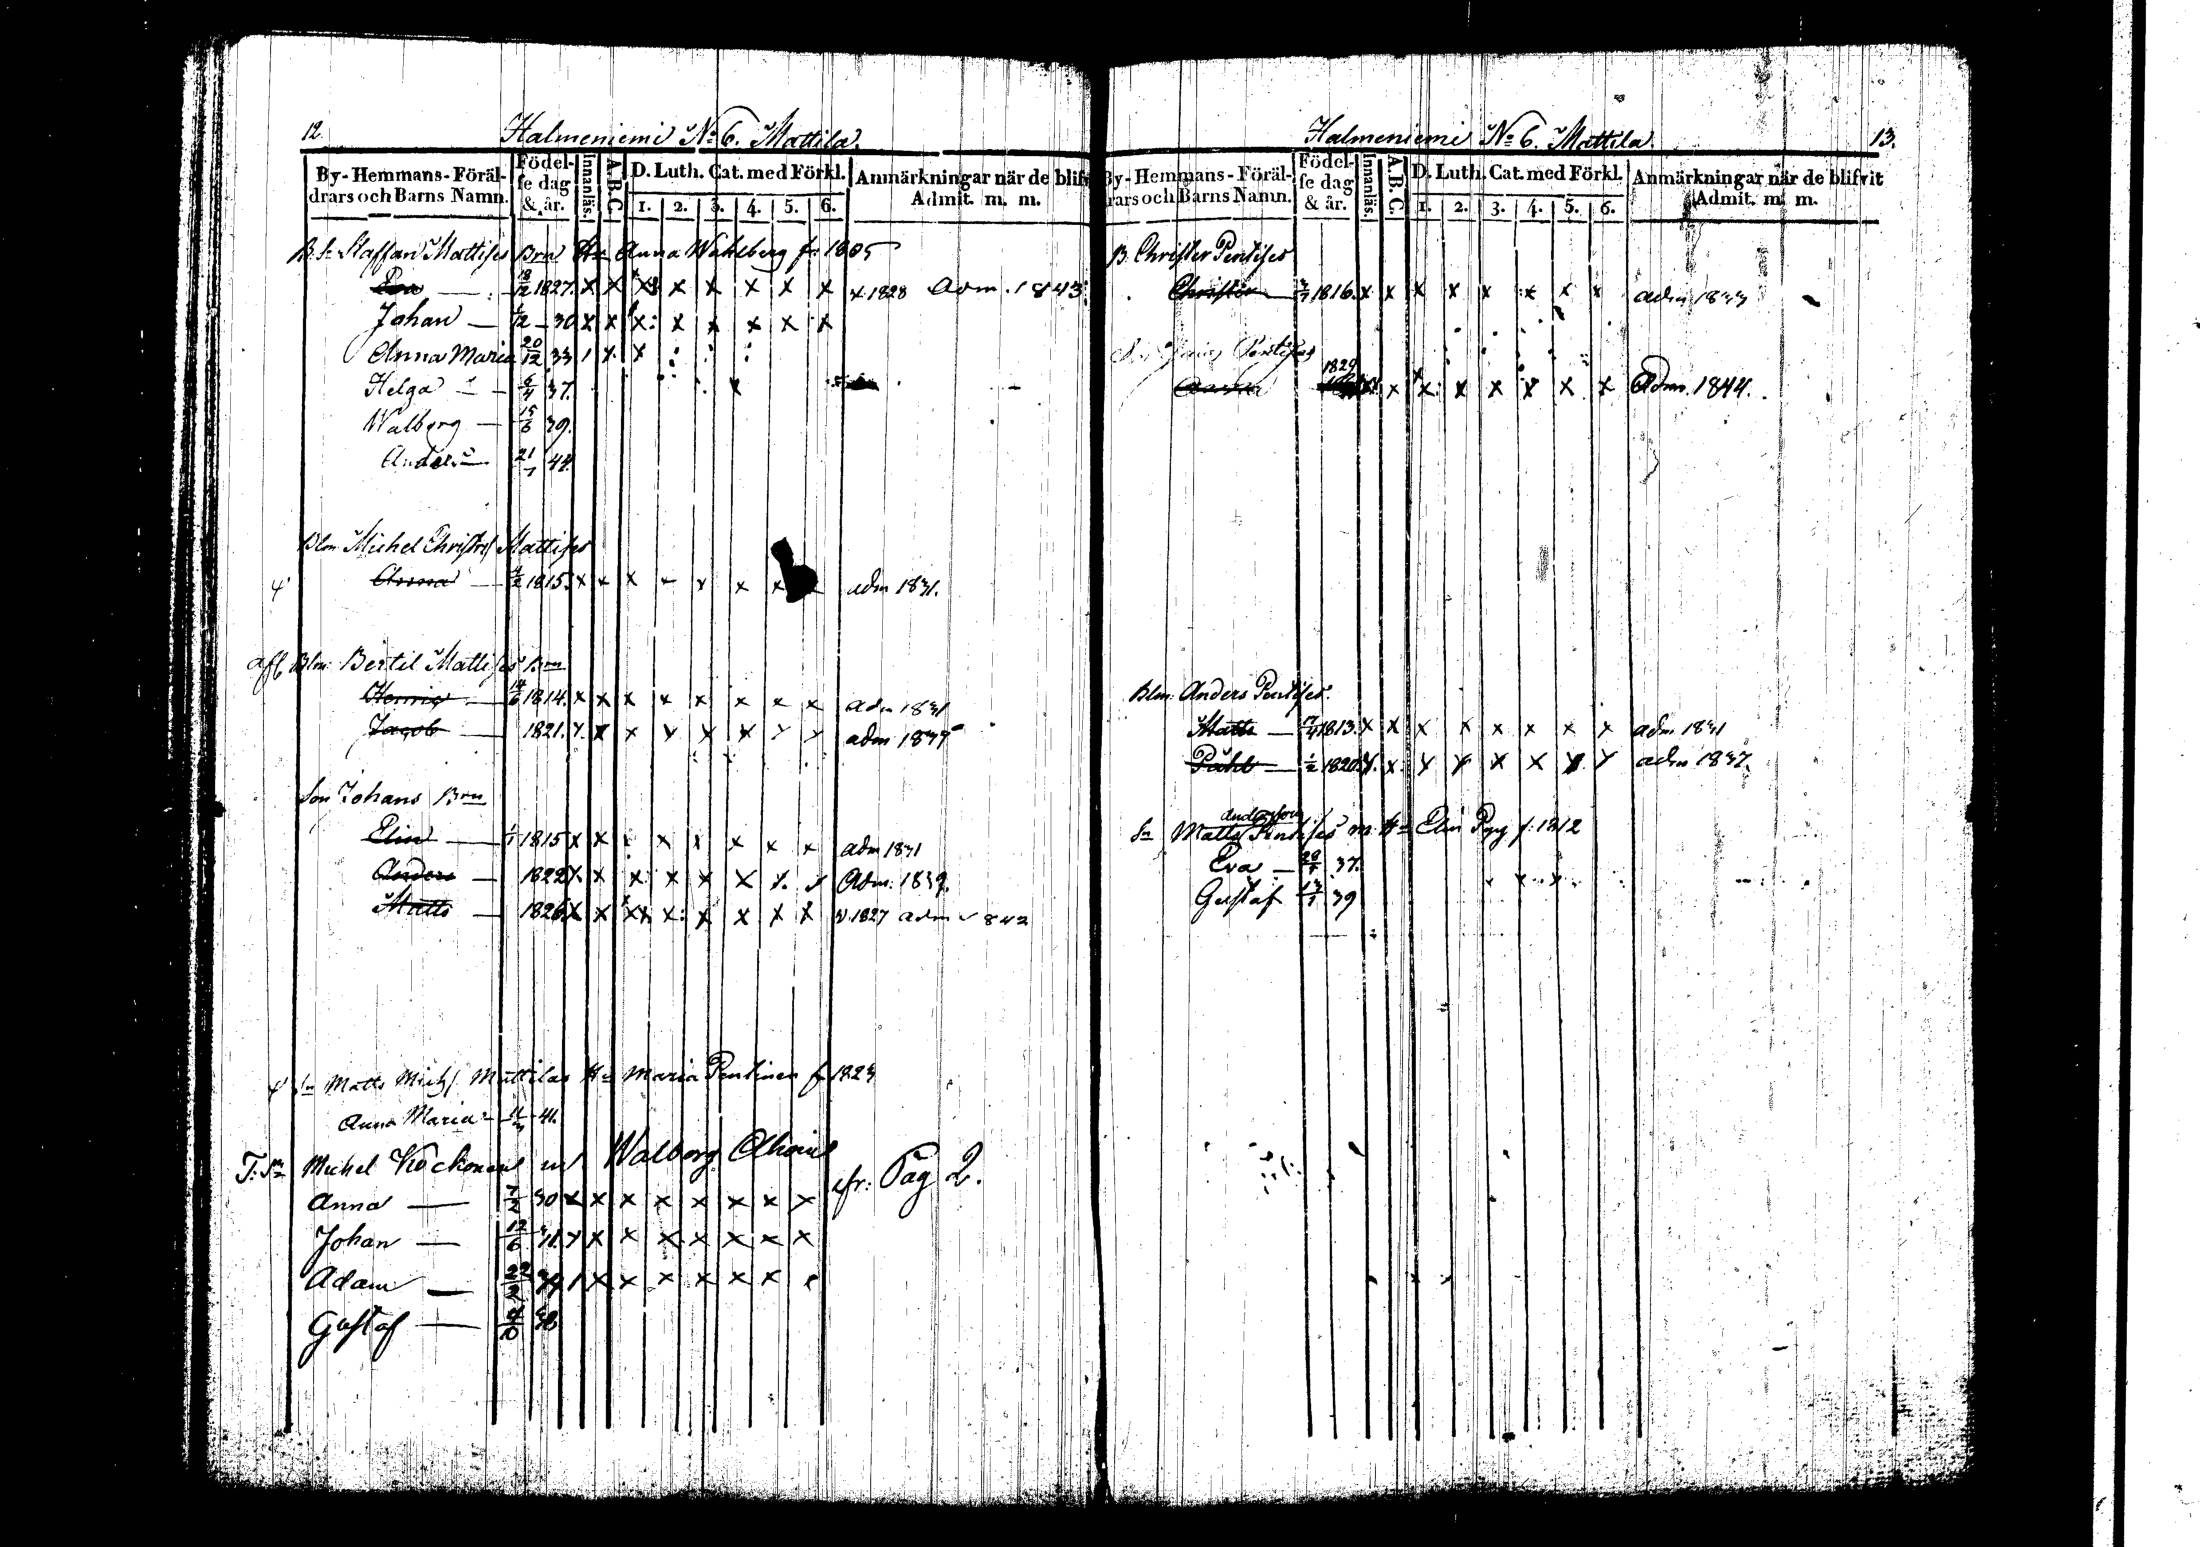 12. Halmeniemi No 6. Mattila.
By-Hemmans-Föräl-drars och Barns Namn. Födel-se dag & år. Innanläs. A.B.C. D. Luth. Cat. med Förkl. 1. 2. 3. 4. 5. 6. Anmärkningar när de blifv Admit. m. m.
B. Sn Staffan Mattises Brn Hu Anna Wahlberg f. 1805
Eva — 18/12 1827. x x x x x x x x 1828 Adm. 1843
Johan — 1/12 — 30 x x x: x x x x x
Anna Maria 20/12 33 1 x x
Helga — 6/4 37.
Walborg — 15/6 39.
Anders — 21/7 44
Blm Michel Christers Mattises
Anna — 4/2 1815. x x x x x x x adm 1831.
afl Blm Bertil Mattises Brn
Henric — 14/6 1814. x x x x x x x x adm 1831
Jacob — 1821. x x x x x x x x adm 1837
Son Johans Brn
Elin — 1/1 1815 x x x x x x x x adm 1831
Anders — 1822 x x x x x x x x Adm. 1839.
Matts — 1826 x x x x x x x x v. 1827 adm 1842
Sn Matts Michs. Mattilas Hu Maria Pentinen f. 1823
Anna Maria — 11/3 41.
T. Sn Michel Kockonens m. Walborg Ahonis
Anna — 7/2 30 x x x x x x x x cfr: Pag 2.
Johan — 12/6 31. x x x x x x x x
Adam — 22/2 34 1 x x x x x x
Gustaf — 4/10 38
Halmeniemi No 6. Mattila. 13.
By-Hemmans-Föräl-drars och Barns Namn. Födel-se dag & år. Innanläs. A.B.C. D. Luth. Cat. med Förkl. 1. 2. 3. 4. 5. 6. Anmärkningar när de blifvit Admit. m. m.
B. Christer Pentises
Christer — 1816. x x x x x x x x adm 1833
Pentises
1829 x x x x x x x x Adm. 1844.
Blm: Anders Pentises.
Matts — 17/4 1813. x x x x x x x x adm 1831
Påhl — 1/2 1820. x. x. x x x x x x adm 1837.
Andersson
Sn Matts Pentises m. Hu Elin Pyy f. 1812
Eva — 37.
Gustaf 13/7 39